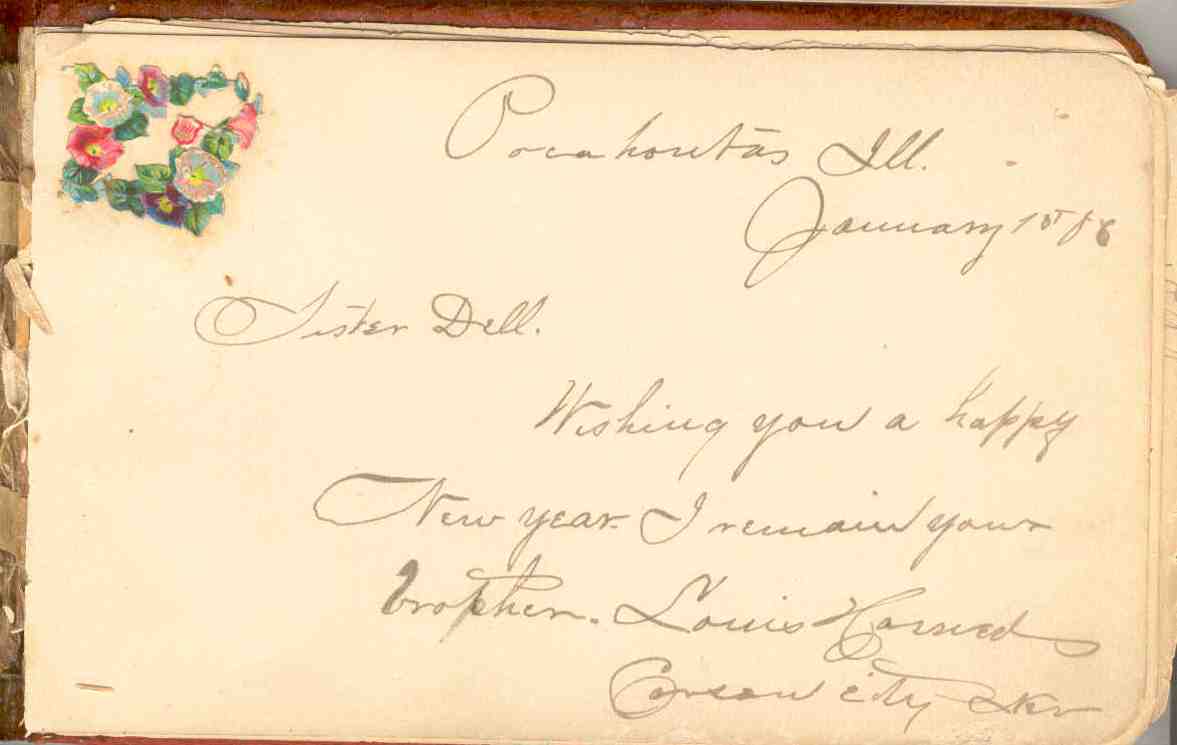 Pocahontas Ill.
January 1st 88
Sister Dell.
Wishing you a happy
New year I remain your
brother. Louis Harned
Carson City